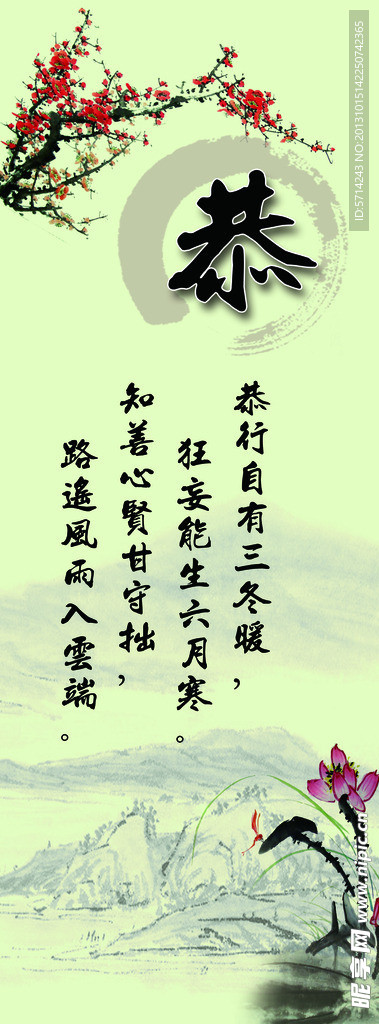 恭
恭行自有三冬暖，
狂妄能生六月寒。
知善心賢甘守拙，
路遙風雨入雲端。
ID:5714243 NO:20131015142250742365
昵享网 www.nipic.cn